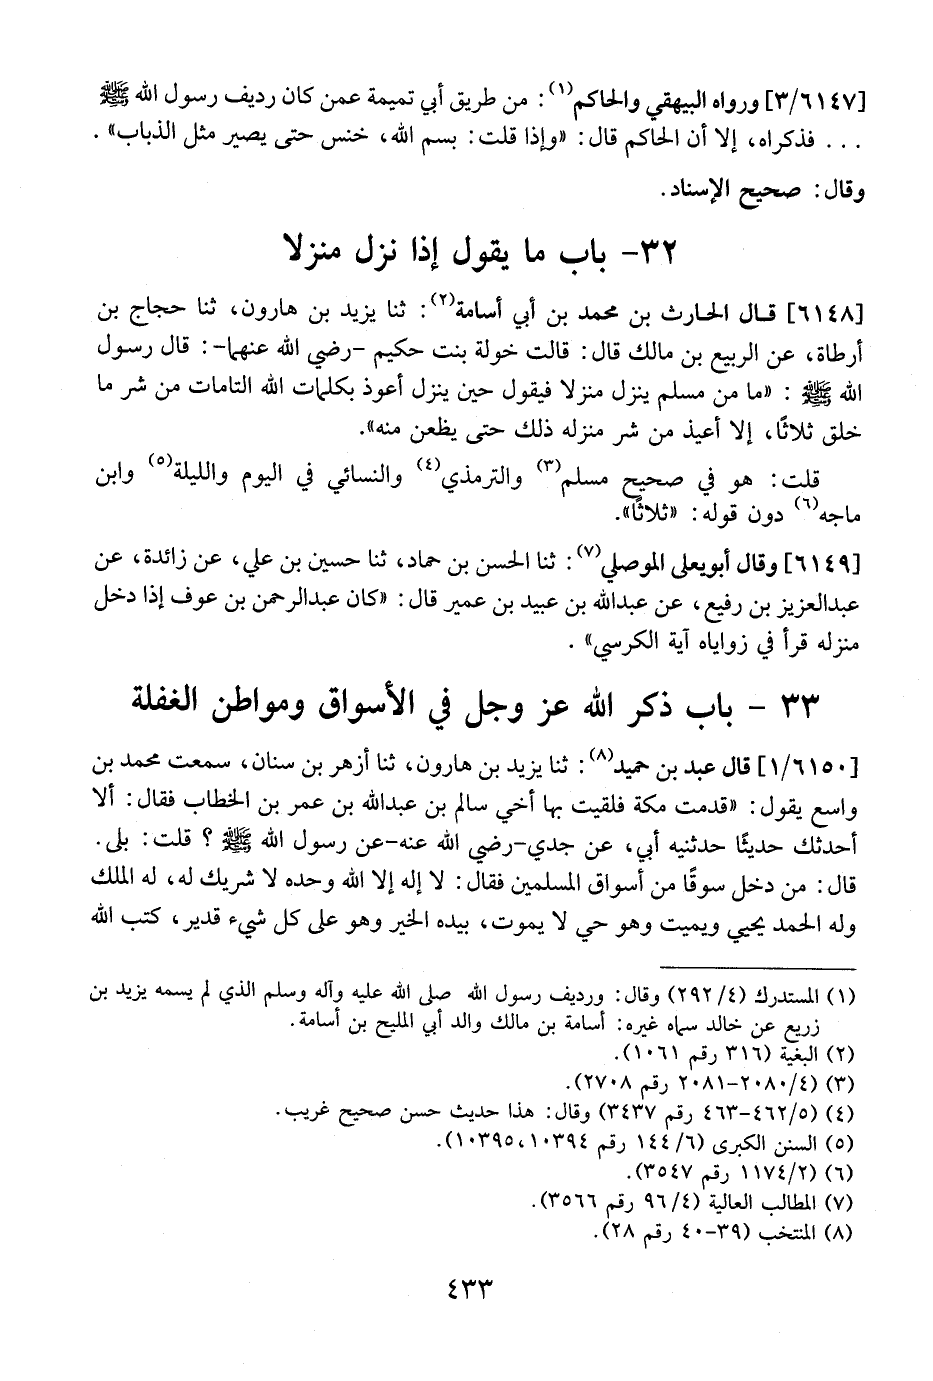 [٣/٦١٤٧] ورواه البيهقي والحاكم(١): من طريق أبي تميمة عمن كان رديف رسول الله ﷺ
... فذكراه، إلا أن الحاكم قال: «وإذا قلت: بسم الله، خنس حتى يصير مثل الذباب».
وقال: صحيح الإسناد.
٣٢- باب ما يقول إذا نزل منزلا
[٦١٤٨] قال الحارث بن محمد بن أبي أسامة(٢): ثنا يزيد بن هارون، ثنا حجاج بن
أرطاة، عن الربيع بن مالك قال: قالت خولة بنت حكيم -رضي الله عنها-: قال رسول
الله ﷺ : «ما من مسلم ينزل منزلا فيقول حين ينزل أعوذ بكلمات الله التامات من شر ما
خلق ثلاثًا، إلا أعيذ من شر منزله ذلك حتى يظعن منه».
قلت: هو في صحيح مسلم(٣) والترمذي(٤) والنسائي في اليوم والليلة(٥) وابن
ماجه(٦) دون قوله: «ثلاثًا».
[٦١٤٩] وقال أبويعلى الموصلي(٧): ثنا الحسن بن حماد، ثنا حسين بن علي، عن زائدة، عن
عبدالعزيز بن رفيع، عن عبدالله بن عبيد بن عمير قال: «كان عبدالرحمن بن عوف إذا دخل
منزله قرأ في زواياه آية الكرسي» .
٣٣ - باب ذكر الله عز وجل في الأسواق ومواطن الغفلة
[١/٦١٥٠] قال عبد بن حميد(٨): ثنا يزيد بن هارون، ثنا أزهر بن سنان، سمعت محمد بن
واسع يقول: «قدمت مكة فلقيت بها أخي سالم بن عبدالله بن عمر بن الخطاب فقال: ألا
أحدثك حديثًا حدثنيه أبي، عن جدي-رضي الله عنه-عن رسول الله ﷺ ؟ قلت: بلى.
قال: من دخل سوقًا من أسواق المسلمين فقال: لا إله إلا الله وحده لا شريك له، له الملك
وله الحمد يحيي ويميت وهو حي لا يموت، بيده الخير وهو على كل شيء قدير، كتب الله
(١) المستدرك (٤/ ٢٩٢) وقال: ورديف رسول الله صلى الله عليه وآله وسلم الذي لم يسمه يزيد بن
زريع عن خالد سماه غيره: أسامة بن مالك والد أبي المليح بن أسامة.
(٢) البغية (٣١٦ رقم ١٠٦١).
(٣) (٤/ ٢٠٨٠-٢٠٨١ رقم ٢٧٠٨).
(٤) (٥/ ٤٦٢-٤٦٣ رقم ٣٤٣٧) وقال: هذا حديث حسن صحيح غريب.
(٥) السنن الكبرى (٦/ ١٤٤ رقم ١٠٣٩٤، ١٠٣٩٥).
(٦) (٢/ ١١٧٤ رقم ٣٥٤٧).
(٧) المطالب العالية (٤/ ٩٦ رقم ٣٥٦٦).
(٨) المنتخب (٣٩-٤٠ رقم ٢٨).
٤٣٣